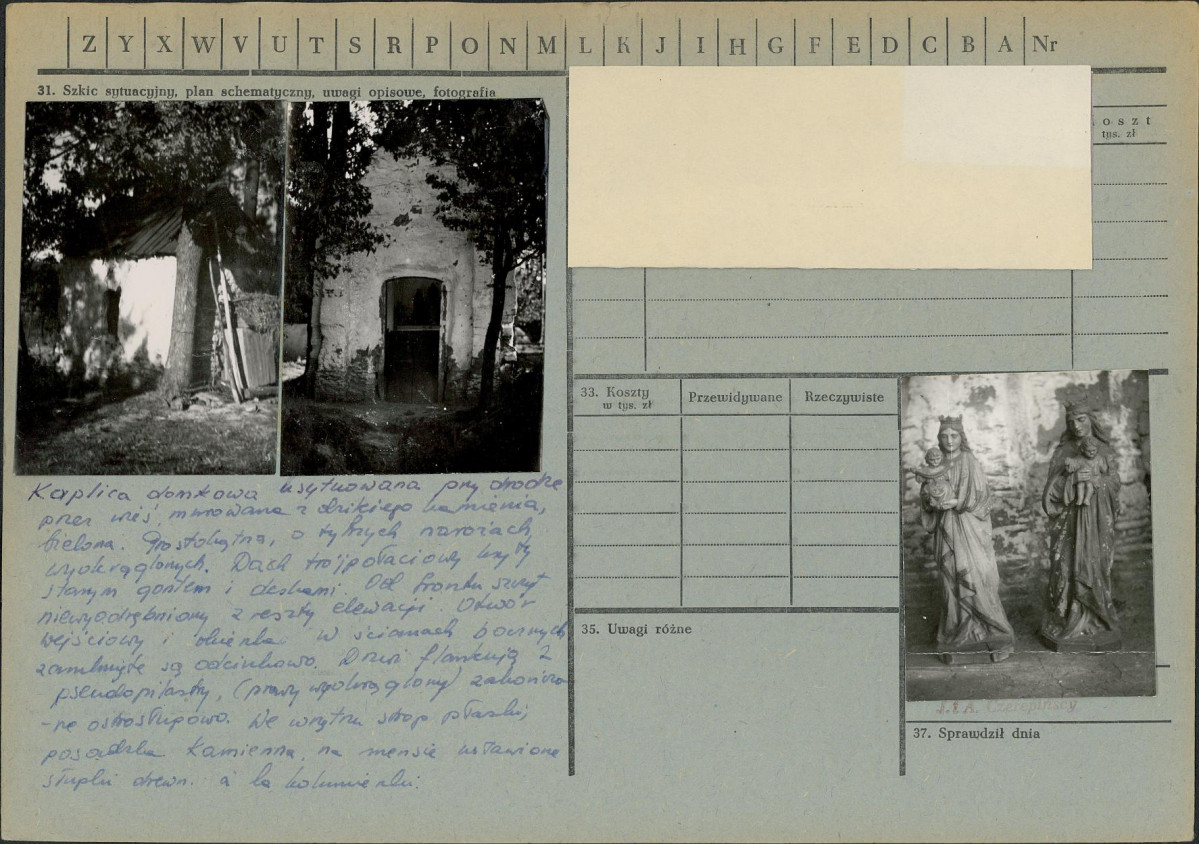 Z Y X W V U T S R P O N M L K J I H G F E D C B A Nr
31. Szkic sytuacyjny, plan schematyczny, uwagi opisowe, fotografia
Kaplica domkowa usytuowana przy drodze
przez wieś, murowana z dzikiego kamienia,
bielona. Prostokątna, o tylnych narożach
wyokrąglonych. Dach trójpołaciowy kryty
starym gontem i deskami. Od frontu szczyt
niewyodrębniony z reszty elewacji. Otwór
wejściowy i okienka w ścianach bocznych
zamknięte są odcinkowo. Drzwi flankują 2
pseudopilastry, (prawy wyokrąglony) zakończo-
-ne ostrosłupowo. We wnętrzu strop płaski,
posadzka kamienna, na mensie ustawione
słupki drewn. à la kolumienki.
oszt
tys. zł
33. Koszty
w tys. zł
Przewidywane
Rzeczywiste
35. Uwagi różne
J. i A. Czerepińscy
37. Sprawdził dnia